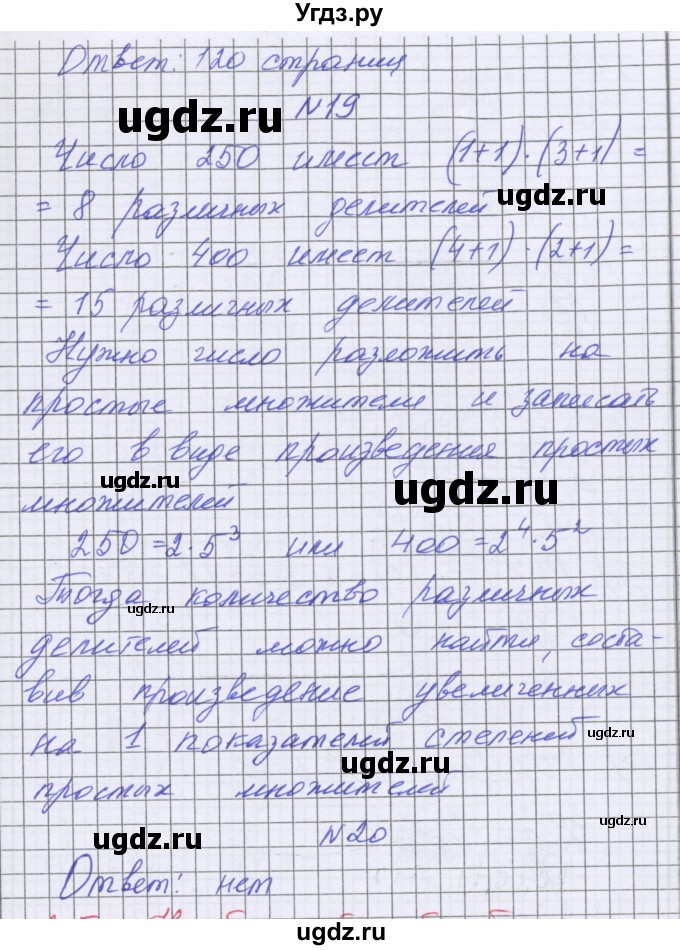 Угдз.ру
Ответ: 120 страниц
ugdz.ru
N19
Число 250 имеет (1+1)·(3+1)=
ugdz.ru
= 8 различных делителей
Число 400 имеет (4+1)·(2+1)=
= 15 различных делителей
Нужно число разложить на
простые множители и записать
его в виде произведения простых
ugdz.ru
ugdz.ru
множителей
250=2·5³ или 400=2⁴·5²
Тогда количество различных
ugdz.ru
делителей можно найти, соста-
вив произведение увеличенных
на 1 показателей степеней
ugdz.ru
простых множителей
ugdz.ru
ugdz.ru
N20
Ответ: нет
ugdz.ru